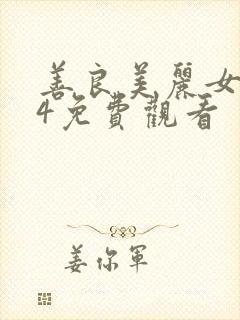 善良美麗女
4免費觀看
姜你軍